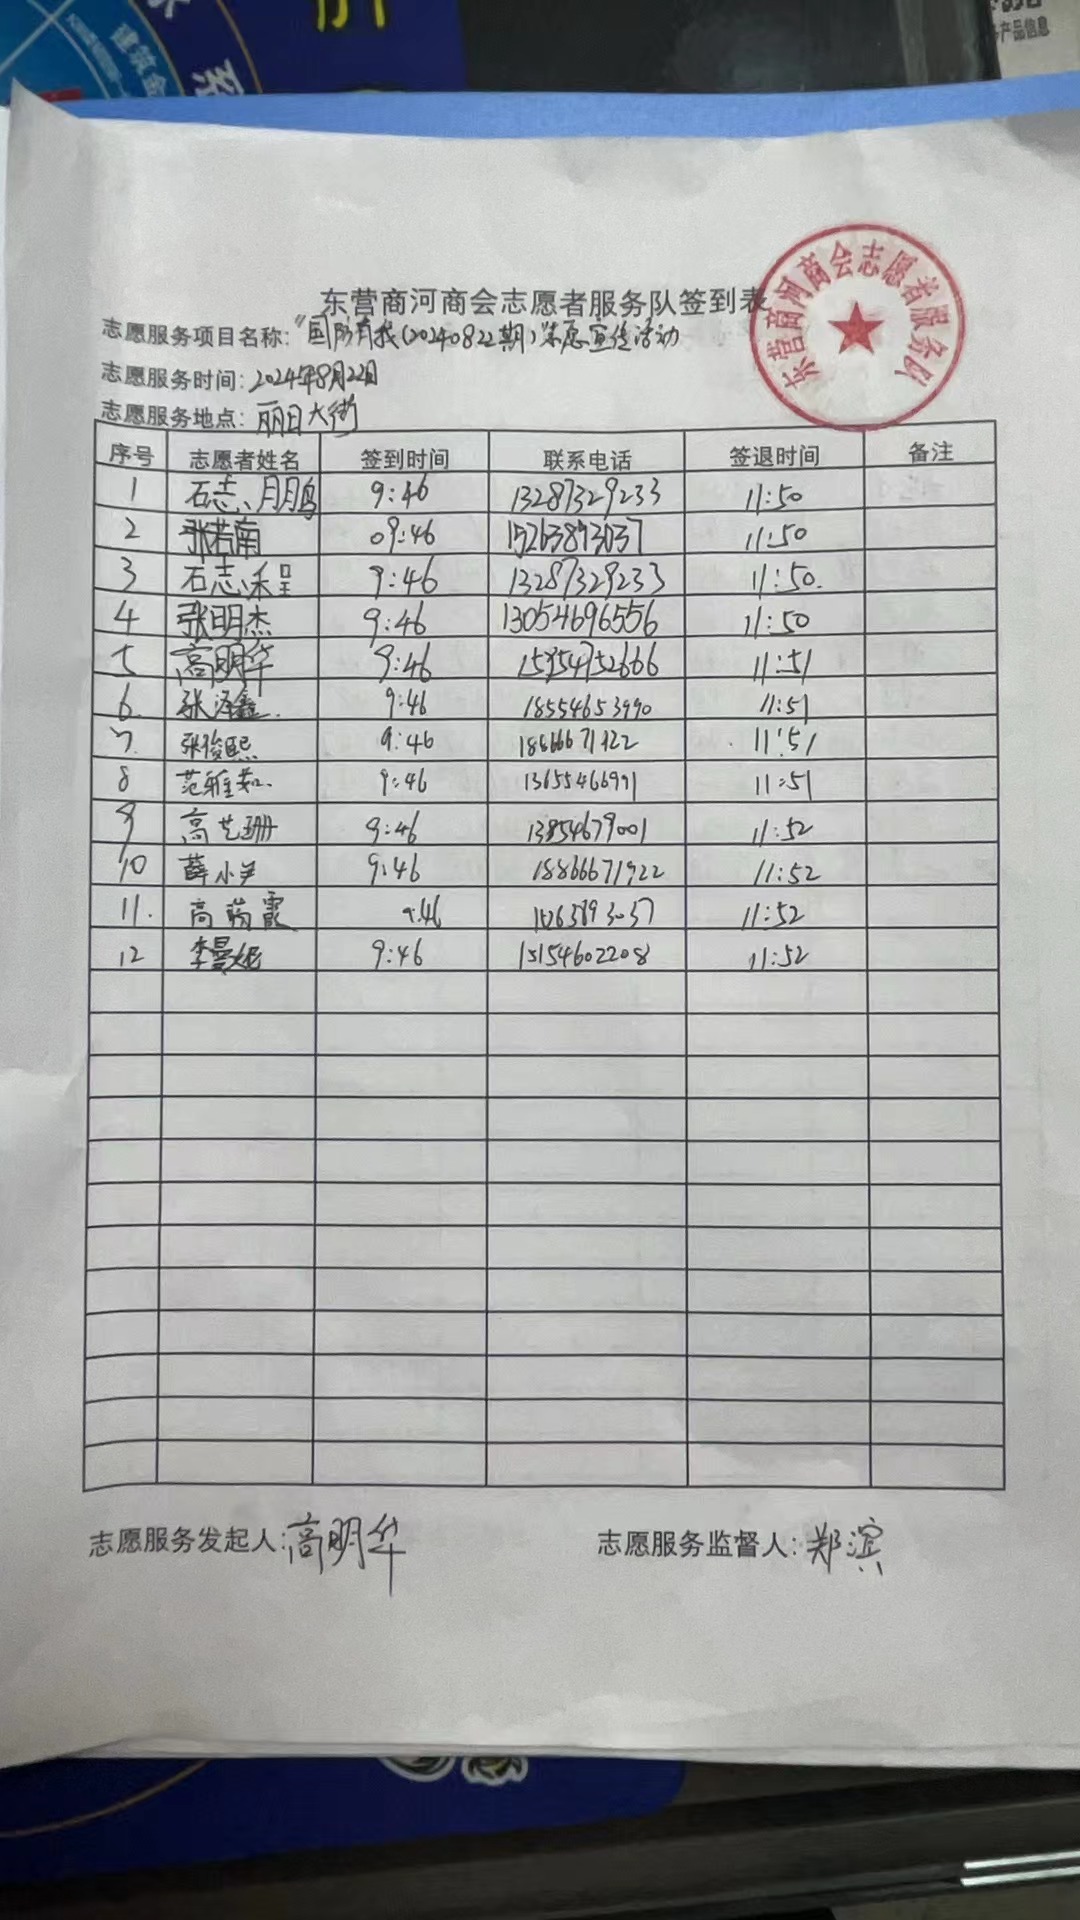 建筑金
产品信息
东营商河商会志愿者服务队签到表
东营商河商会志愿者服务队
志愿服务项目名称:"国防有我(20240822期)志愿宣传活动
志愿服务时间:2024年8月22日
志愿服务地点:丽日大街
序号 志愿者姓名 签到时间 联系电话 签退时间 备注
1 石志鹏 9:46 13287329233 11:50
2 张若南 09:46 15263893037 11:50
3 石志程 9:46 13287329233 11:50.
4 张明杰 9:46 13054696556 11:50
5 高明华 9:46 11:51
6. 张泽鑫. 9:46 18554653990 11:51
7. 张俊熙 9:46 11:51
8 范雅茹. 9:46 13655466991 11:51
9 高艺珊 9:46 13854679001 11:52
10 薛小尹 9:46 18866671922 11:52
11. 高 霞 9:46 11:52
12 李曼妮 9:46 15154602208 11:52
志愿服务发起人:高明华 志愿服务监督人:郑滨